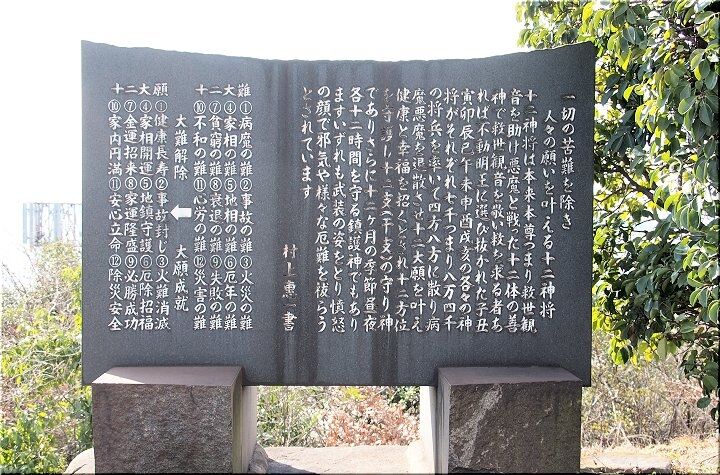 一切の苦難を除き
人々の願いを叶える十二神将
十二神将は本来本尊つまり救世観
音を助け悪魔と戦った十二体の善
神で救世観音を敬い救を求る者あ
れば不動明王に選び抜かれた子丑
寅卯辰巳午未申酉戌亥の各々の神
将がそれぞれ七千つまり八万四千
の将兵を率いて四方八方に散り病
魔悪魔を退散させ十二大願を叶え
健康と幸福を招くとされ十二方位
を守護し十二支(干支)の守り神
でありさらに十二ヶ月の季節昼夜
各十二時間を守る鎮護神でもあり
ますいずれも武装の姿をとり憤怒
の顔で邪気や様々な厄難を祓らう
とされています
村上惠一書
難①病魔の難②事故の難③火災の難
大④家相の難⑤地相の難⑥厄年の難
二⑦貧窮の難⑧衰退の難⑨失敗の難
十⑩不和の難⑪心労の難⑫災害の難
大難解除 ⬅ 大願成就
願①健康長寿②事故封じ③火難消滅
大④家相開運⑤地鎮守護⑥厄除招福
二⑦金運招来⑧家運隆盛⑨必勝成功
十⑩家内円満⑪安心立命⑫除災安全